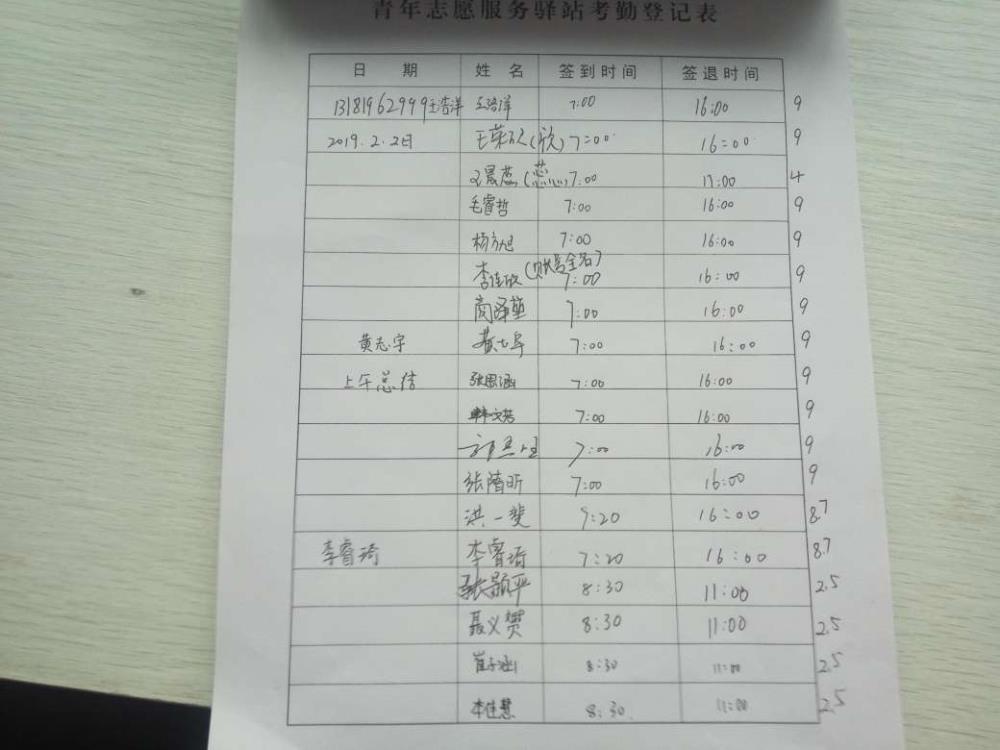 青年志愿服务驿站考勤登记表
日 期 姓 名 签到时间 签退时间
13181962999王浩洋 王浩洋 7:00 16:00 9
2019.2.2日 王荣 7:00 16:00 9
王晨蕊(蕊) 7:00 11:00 4
毛睿哲 7:00 16:00 9
杨 7:00 16:00 9
李佳 7:00 16:00 9
商泽 7:00 16:00 9
黄志宇 黄志宇 7:00 16:00 9
上午总结 张思涵 7:00 16:00 9
韩文 7:00 16:00 9
7:00 16:00 9
张 昕 7:00 16:00 9
洪一斐 16:00 8.7
李睿琦 李睿琦 7:20 16:00 8.7
张颢平 8:30 11:00 2.5
聂义赟 8:30 11:00 2.5
崔子涵 8:30 11:00 2.5
李佳慧 8:30 11:00 2.5